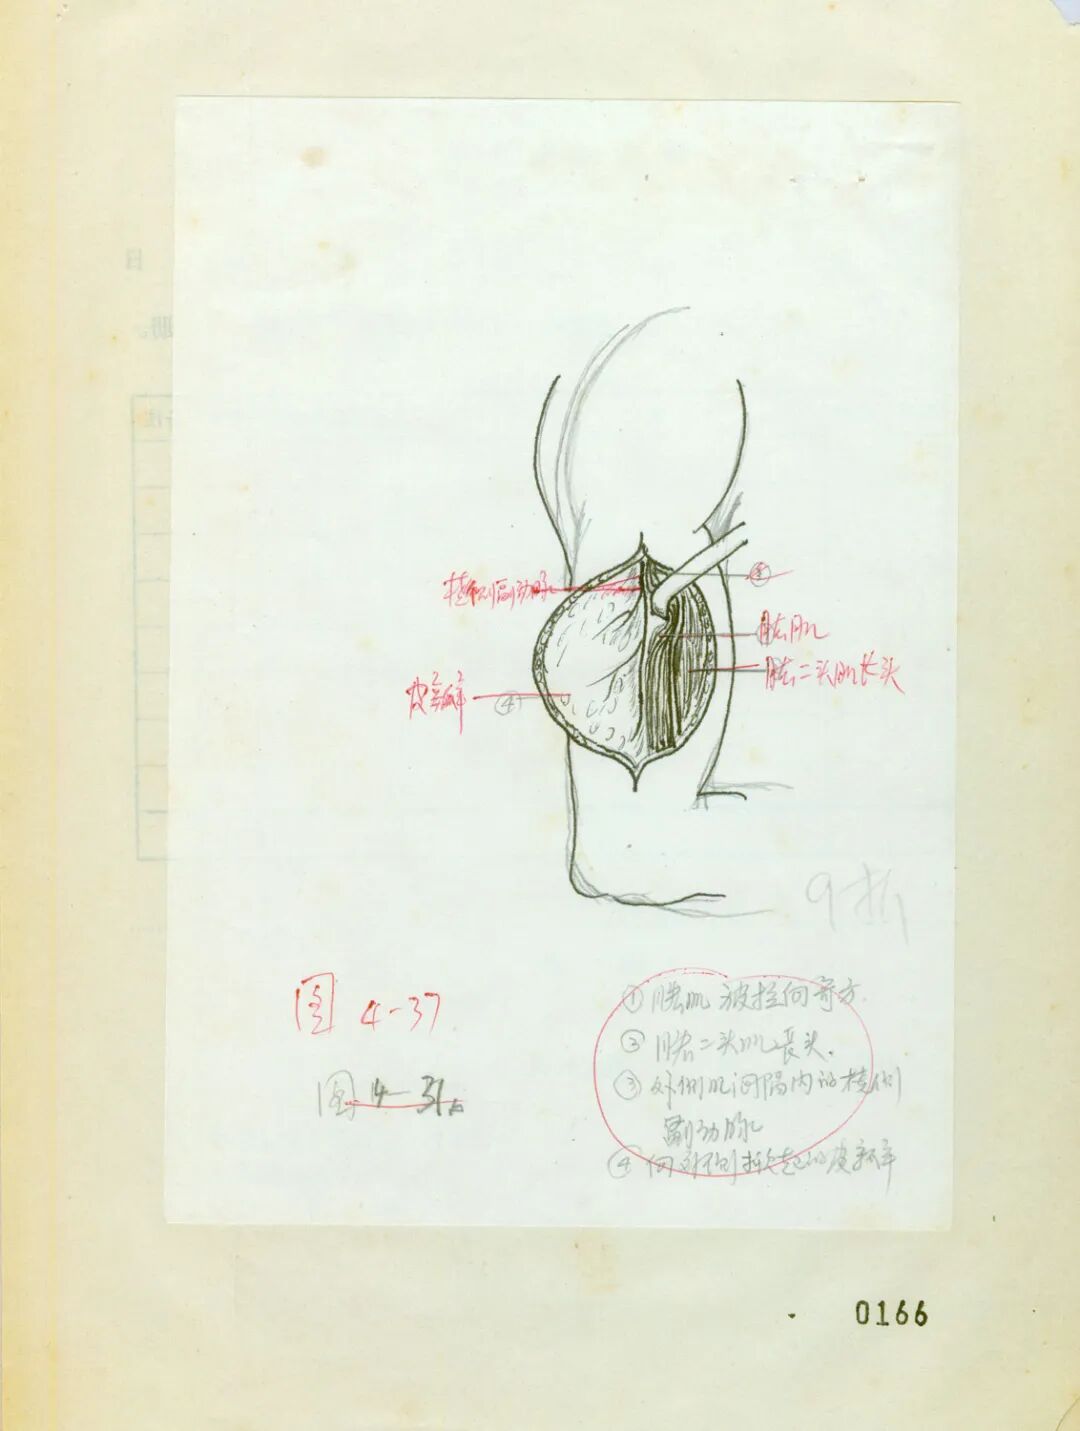 桡侧副动脉
③
肱肌
肱二头肌长头
皮瓣
④
9折
图 4-37
图 4-31
① 肱肌被拉向前方.
② 肱二头肌长头.
③ 外侧肌间隔内的桡侧
副动脉
④ 向外侧掀起的皮瓣
0166